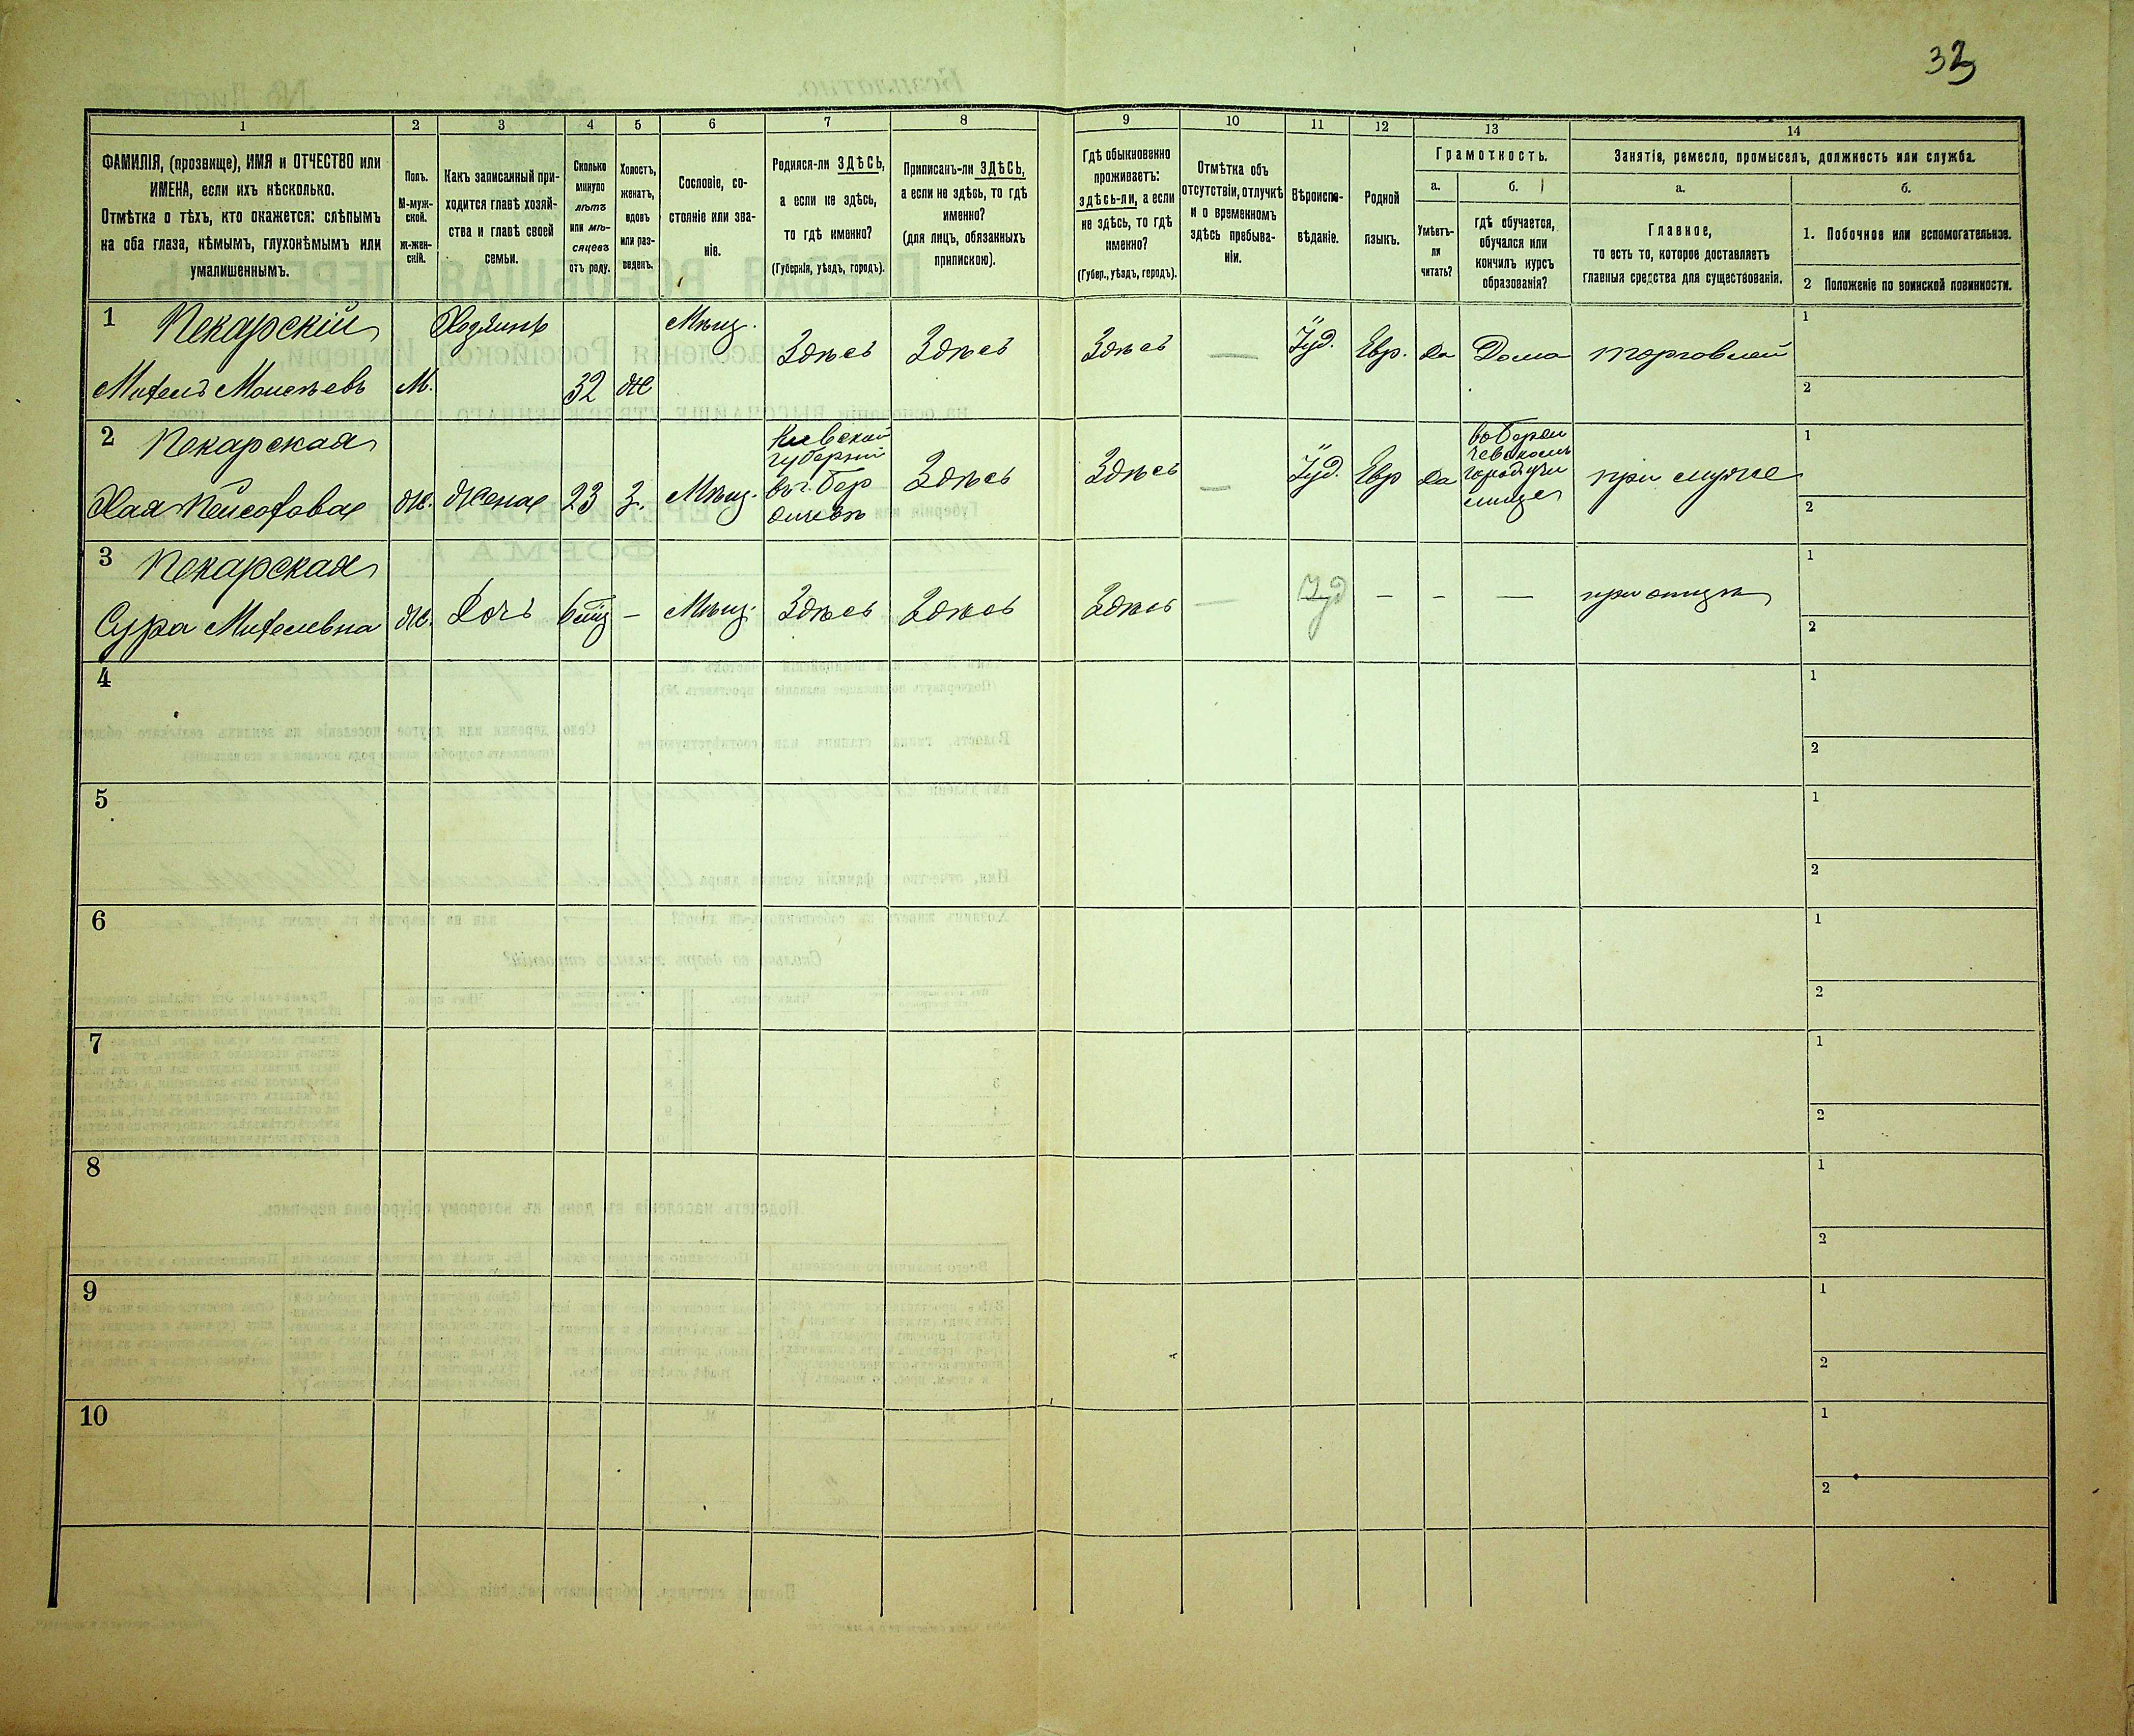 33
1 2 3 4 5 6 7 8 9 10 11 12 13 14
ФАМИЛІЯ, (прозвище), ИМЯ и ОТЧЕСТВО или
ИМЕНА, если ихъ нѣсколько.
Отмѣтка о тѣхъ, кто окажется: слѣпымъ
на оба глаза, нѣмымъ, глухонѣмымъ или
умалишеннымъ.
Полъ.
М-муж-
ской.
Ж-жен-
скій.
Какъ записанный при-
ходится главѣ хозяй-
ства и главѣ своей
семьи.
Сколько
минуло
лѣтъ
или мѣ-
сяцевъ
отъ роду.
Холостъ,
женатъ,
вдовъ
или раз-
веденъ.
Сословіе, со-
стояніе или зва-
ніе.
Родился-ли ЗДѢСЬ,
а если не здѣсь,
то гдѣ именно?
(Губернія, уѣздъ, городъ).
Приписанъ-ли ЗДѢСЬ,
а если не здѣсь, то гдѣ
именно?
(для лицъ, обязанныхъ
припискою).
Гдѣ обыкновенно
проживаетъ:
здѣсь-ли, а если
не здѣсь, то гдѣ
именно?
(Губер., уѣздъ, городъ).
Отмѣтка объ
отсутствіи, отлучкѣ
и о временномъ
здѣсь пребыва-
ніи.
Вѣроиспо-
вѣданіе.
Родной
языкъ.
Грамотность.
а.
Умѣетъ-
ли
читать?
б.
гдѣ обучается,
обучался или
кончилъ курсъ
образованія?
Занятіе, ремесло, промыселъ, должность или служба.
а.
Главное,
то есть то, которое доставляетъ
главныя средства для существованія.
б.
1. Побочное или вспомогательное.
2 Положеніе по воинской повинности.
1 Пекарскій Хозяинъ Мѣщ. Здѣсь Здѣсь Здѣсь — Іуд. Евр. да Дома торговлей 1
Мошевъ М. 32 Ж 2
2 Пекарская Кіевской губерніи въ г. Бер дичевѣ Здѣсь Здѣсь — Іуд. Евр да въ Берди чевскомъ город учи лище при мужѣ 1
Хая Ж. Жена 23 З. Мѣщ. 2
3 Пекарская 1
Сура Ж. Дочь Мѣщ. Здѣсь Здѣсь Здѣсь — Іуд — — — при отцѣ 2
4 1
2
5 1
2
6 1
2
7 1
2
8 1
2
9 1
2
10 1
2